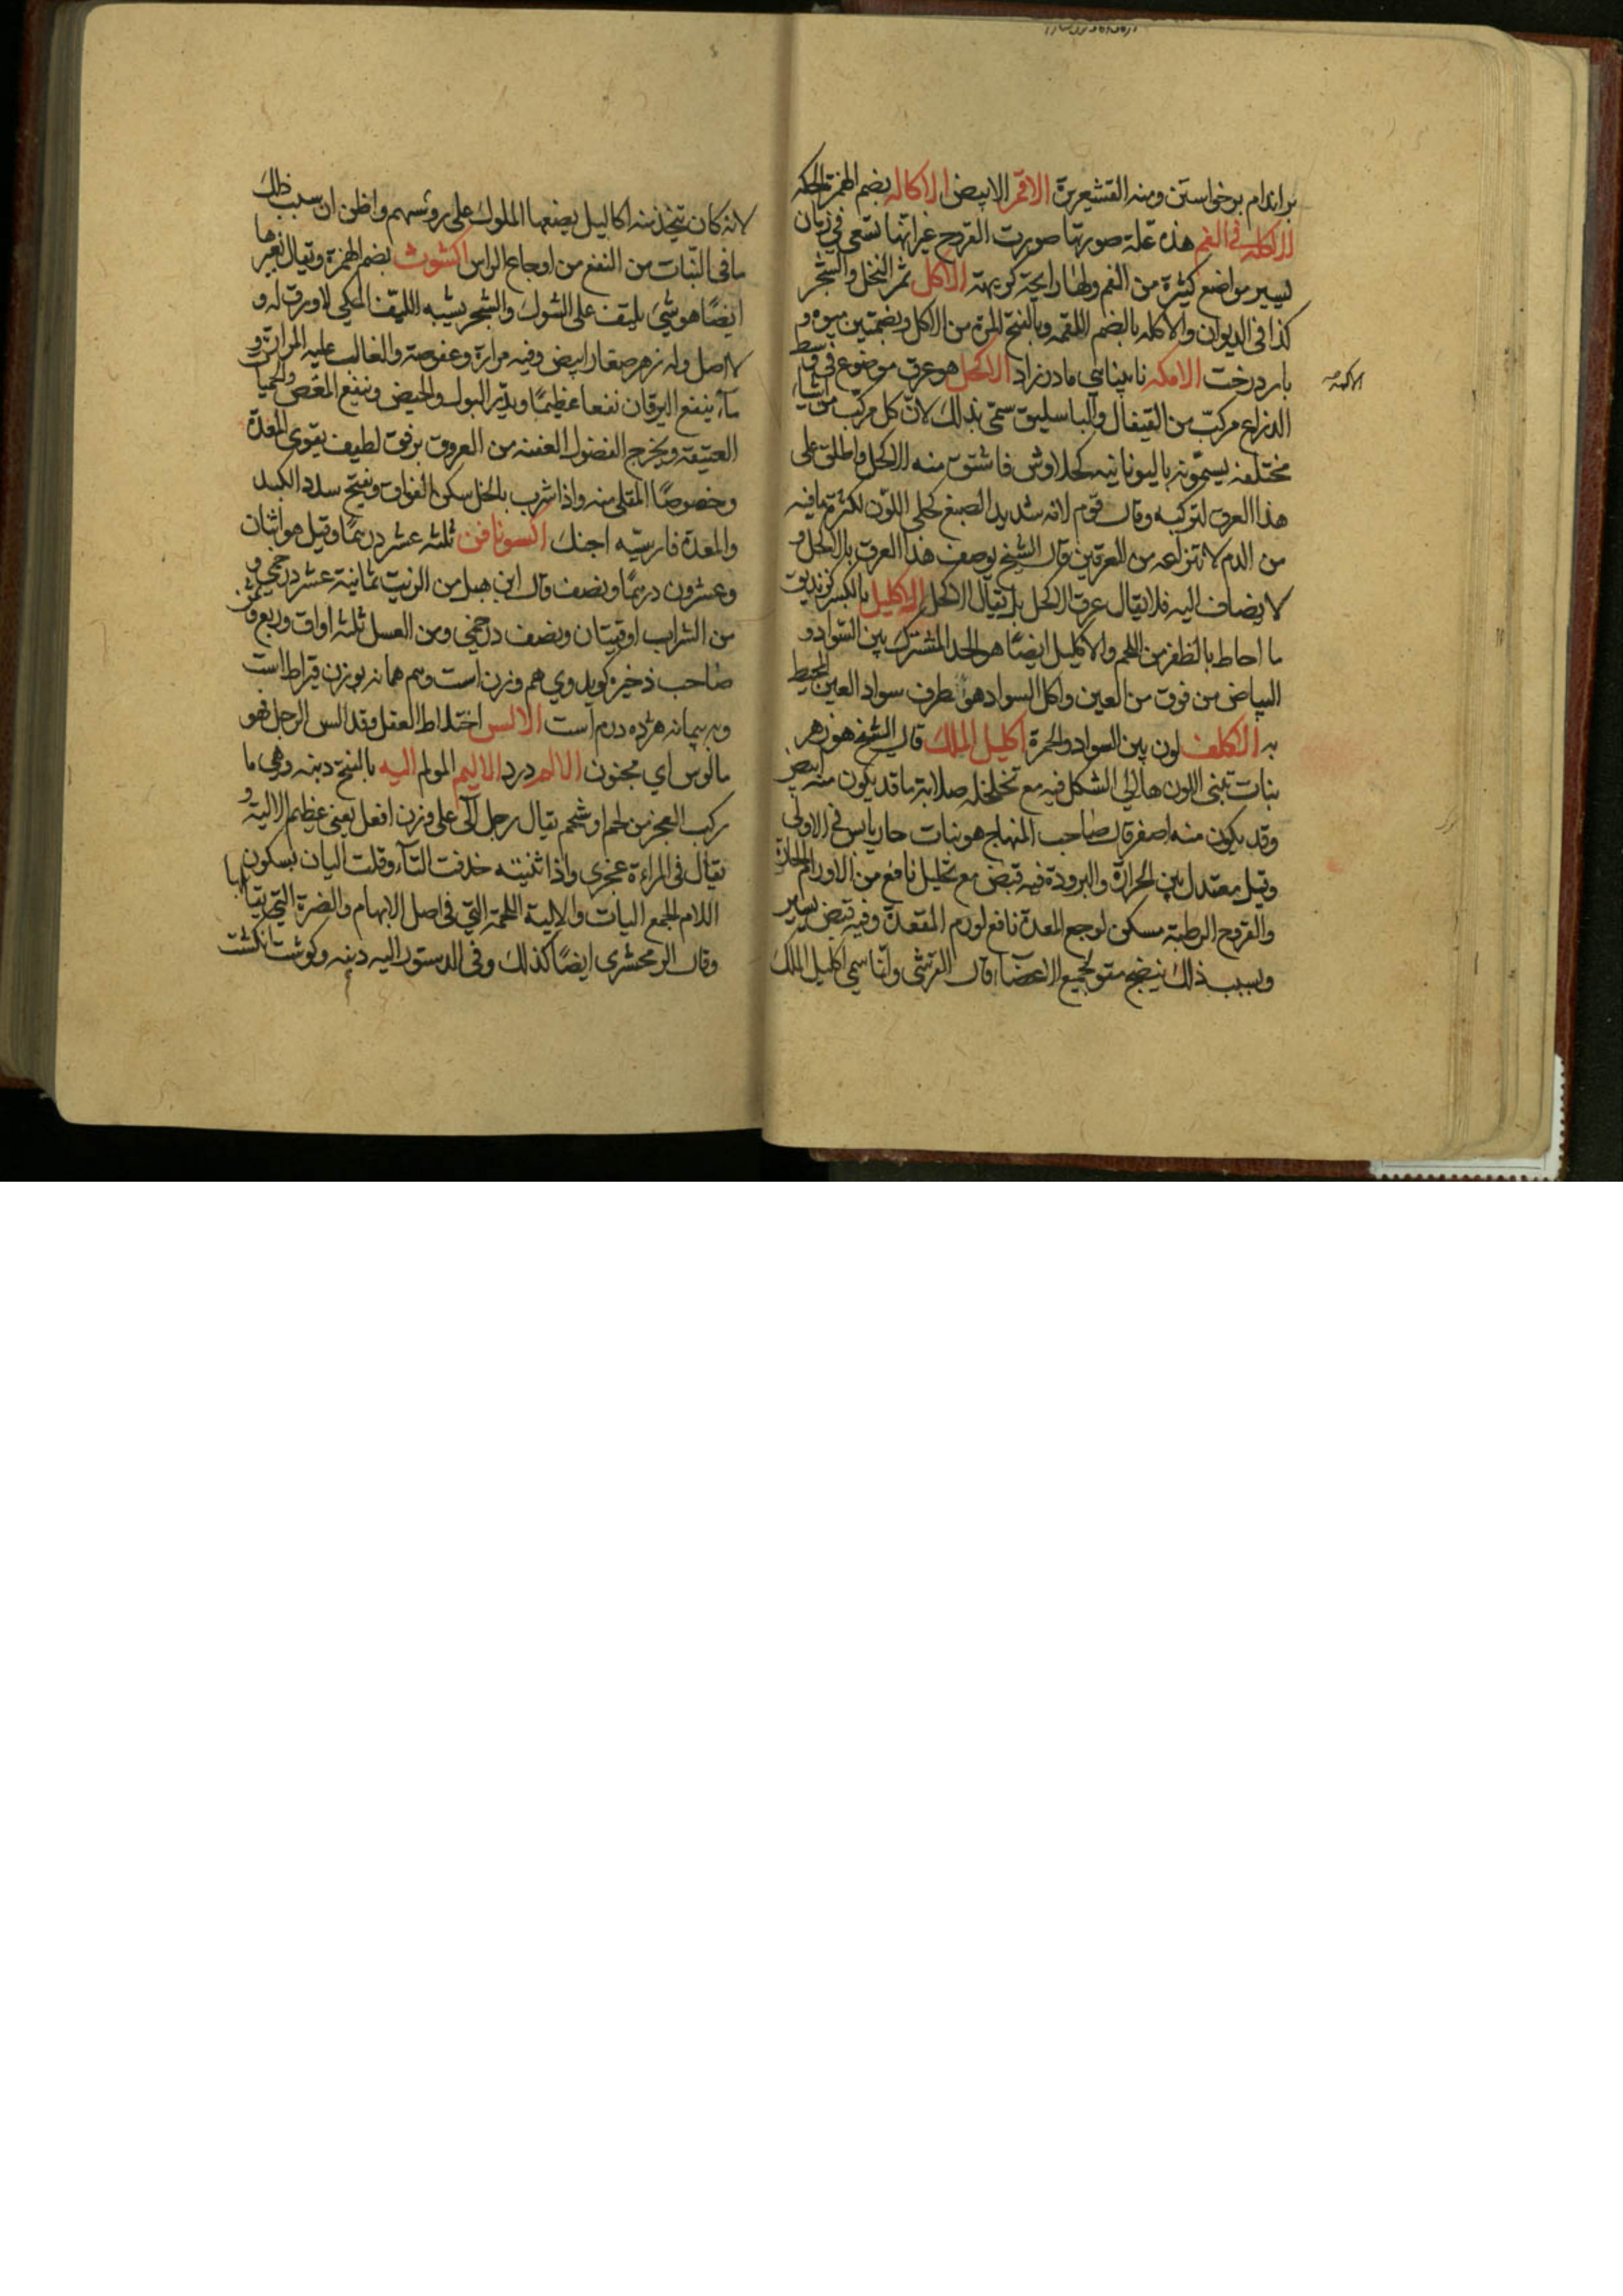 بر اندام برخواستن ومنه القشعريرة الاقمر الابيض الاكاله بضم الهمزة الحكه
الاكله في الفم هذه علة صورتها صورت القروح غير انها تسعى في زمان
يسير مواضع كثيرة من الفم ولها رايحة كريهة الاكل ثمر النخل والشجر
كذا في الديوان والاكله بالضم اللقمه وبالفتح المرة من الاكل وبضمتين ميوه و
بار درخت الامكه نابيناي مادرزاد الاكحل هو عرق موضوع في وسط
الاكمه صح
الذراع مركب من القيفال والباسليق سمى بذلك لان كل مركب من اشياء
مختلفه يسمونه باليونانيه كحلاوش فاشتق منه الاكحل واطلق على
هذا العرق لتركبه وقال قوم لانه شديد الصبغ كحلى اللون لكثرة ما فيه
من الدم لانتزاعه من العرقين قال الشيخ يوصف هذا العرق بالاكحل و
لا يضاف اليه فلا يقال عرق الاكحل بل يقال الاكحل الاكليل بالكسر كزنديق
ما احاط بالظفر من اللحم والاكليل ايضا هو الحد المشترك بين السواد و
البياض من فوق من العين واكل السواد هو طرف سواد العين المحيط
به الاكلف لون بين السواد والحمرة اكليل الملك قال الشيخ هو زهر
نبات تبنى اللون هلالي الشكل فيه مع تخلخله صلابة ما قد يكون منه ابيض
وقد يكون منه اصفر قال صاحب المنهاج هو نبات حار يابس في الاولى
وقيل معتدل بين الحرارة والبرودة فيه قبض مع تحليل نافع من الاورام الحارة
والقروح الرطبة مسكن لوجع المعدة نافع لورم المقعدة وفيه قبض يسير
وبسبب ذلك ينضج مقو لجميع الاعضاء قال القرشي وانما سمي اكليل الملك
لانه كان يتخذ منه اكاليل يضعها الملوك على رؤسهم واظن ان سبب ذلك
ما في النبات من النفع من اوجاع الراس اكشوث بضم الهمزة ويقال بغيرها
ايضا هو شيء يلتف على الشوك والشجر يشبه الليف المكي لا ورق له و
لا اصل وله زهر صغار ابيض وفيه مرارة وعفوصة والغالب عليه المرارة و
ماؤه ينفع اليرقان نفعا عظيما ويدر البول والحيض وينفع المغص والحميات
العتيقة ويخرج الفضول العفنه من العروق برفق لطيف يقوى المعدة
وخصوصا المقلى منه واذا شرب بالخل سكن الفواق ويفتح سدد الكبد
والمعدة فارسيه اجنك اكسونافن ثلثه عشر درهما وقيل هو اثنان
وعشرون درهما ونصف وقال ابن هبل من الزيت ثمانية عشر درخمي و
من الشراب اوقيتان ونصف درخمي ومن العسل ثلثه اواق وربع وثمن
صاحب ذخيره كويد وي هم وزن است وهم همانه بوزن قيراط است
وبه پیمانه هژده درم است الالس اختلاط العقل وقد الس الرجل فهو
مالوس اي مجنون الالم درد الاليم المولم اليه بالفتح دنبه وهي ما
ركب العجز من لحم او شحم يقال رجل آلى على وزن افعل يعنى عظيم الالية و
يقال في المراءة عجزى واذا ثنيته حذفت التاء وقلت اليان بسكون
اللام الجمع اليات والالية اللحمة التي في اصل الابهام والضرة التي تقابلها
وقال الزمخشرى ايضا كذلك وفي الدستور اليه دنبه وكوشت انكشت